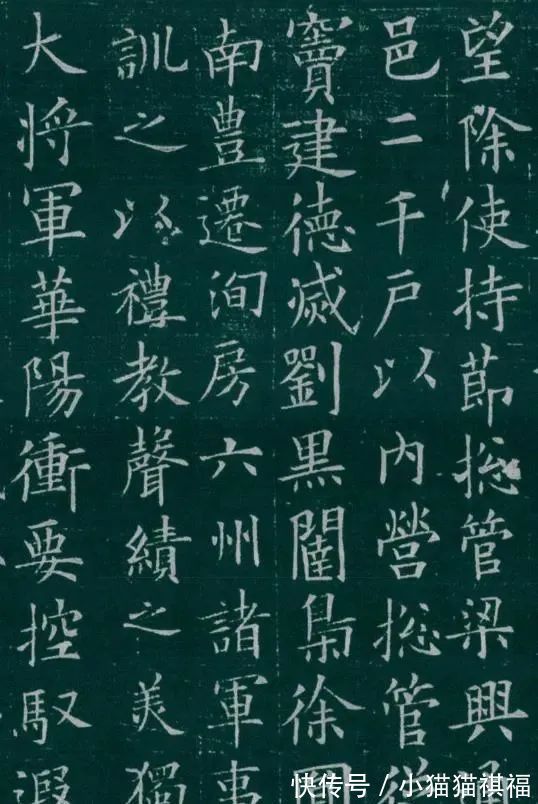 望除使持節捴管梁興
邑二千戶以內營捴管從
竇建德滅劉黑闥梟徐圓
南豐遷洵房六州諸軍事
訓之以禮教聲績之美獨
大將軍華陽衝要控馭遐
快传号 / 小猫猫祺福